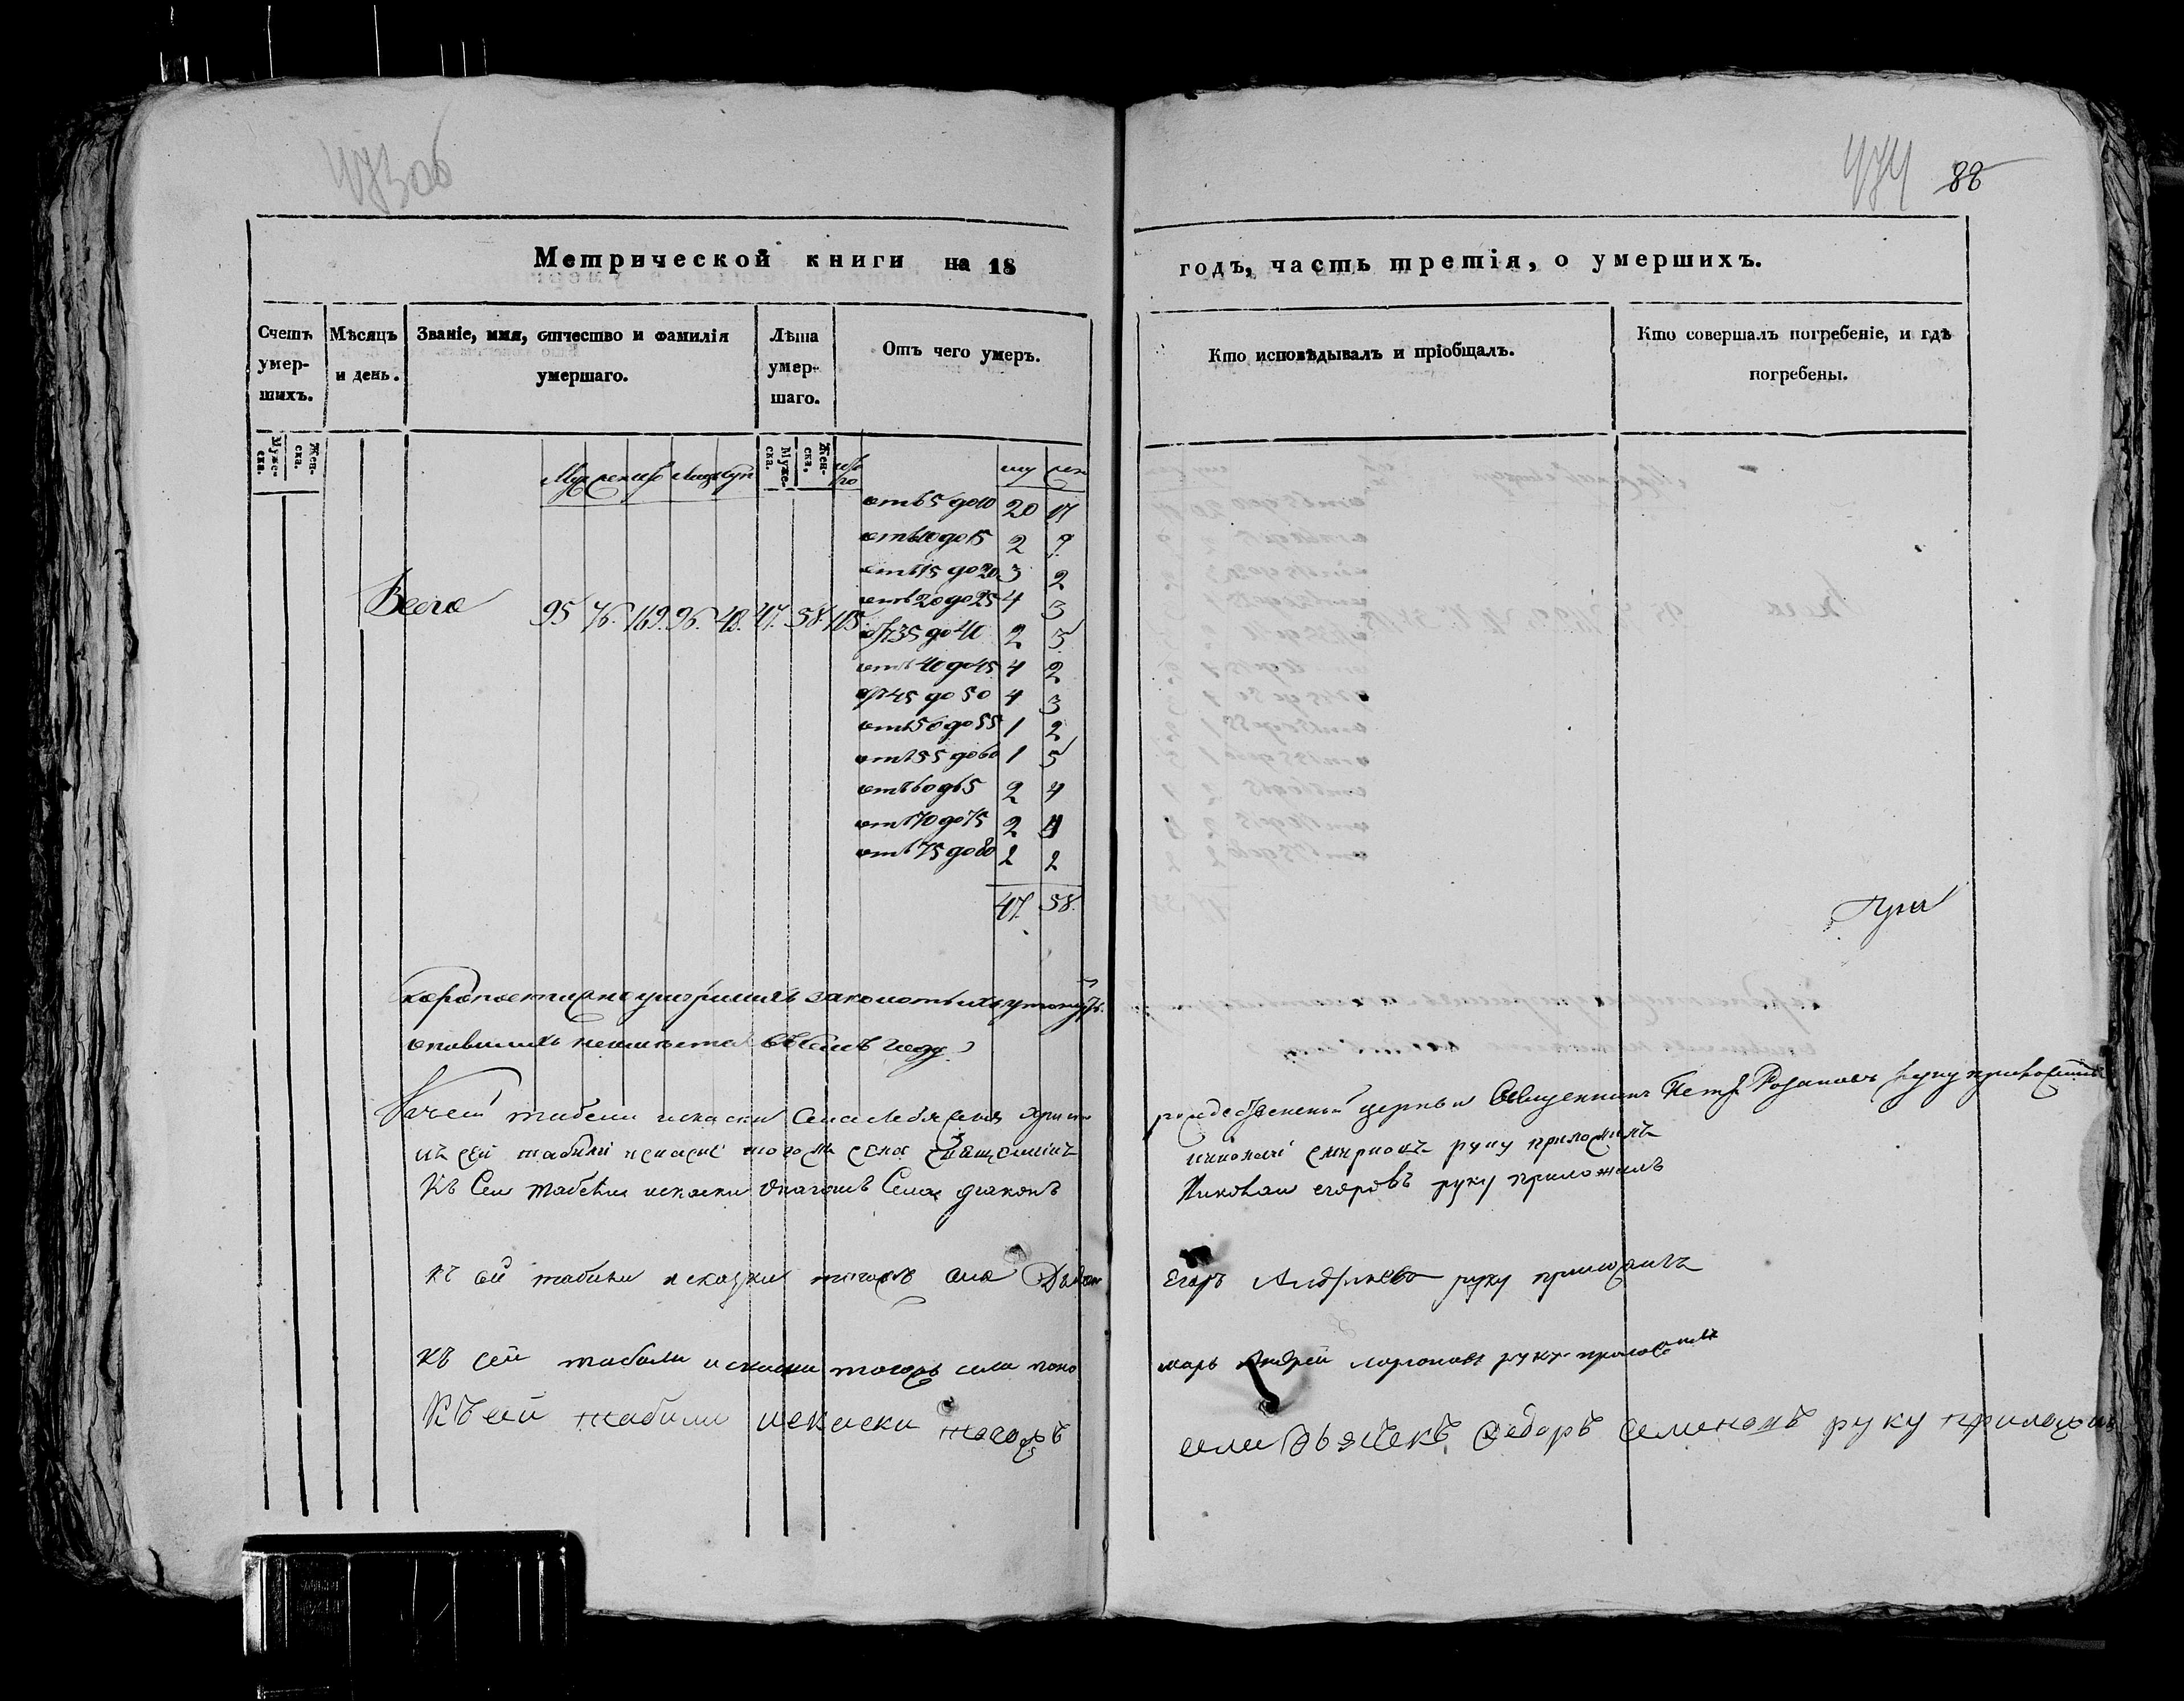 473об
474 88
Метрической книги на 18 годъ, часть третія, о умершихъ.
Счетъ умер-шихъ.
Мѣсяцъ и день.
Званіе, имя, отчество и фамилія умершаго.
Лѣта умер-шаго.
Отъ чего умеръ.
Кто исповѣдывалъ и пріобщалъ.
Кто совершалъ погребеніе, и гдѣ погребены.
Муже-ска.
Жен-ска.
Муже-ска.
Жен-ска.
му жен
отъ 5 до 10 20 17
отъ 10 до 15 2 7
отъ 15 до 20 3 2
отъ 20 до 25 4 3
от 35 до 40 2 5
отъ 40 до 45 4 2
от 45 до 50 4 3
отъ 50 до 55 1 2
отъ 55 до 60 1 5
отъ 60 до 65 2 4
отъ 70 до 75 2 4
отъ 75 до 80 2 2
Всего 95 76. 169. 96. 48. 47. 58. 105
47. 58.
въ семъ году
К сей табели и скаски села рождественской церкви Священникъ Петръ Розановъ руку приложилъ
къ сей табели и скаске того ж села священникъ николаі смирновъ руку приложилъ
Къ Сей табели и скаски Села диаконъ Николаи егоровъ руку приложилъ
къ сей табели и сказки тогожъ села Егоръ Андреевъ руку приложилъ
къ сей табели и скаски тогожъ села поно
марь Андрей руку приложилъ
Къ сей табели и скаски тогожъ
села дьячекъ Федоръ Семеновъ руку приложилъ